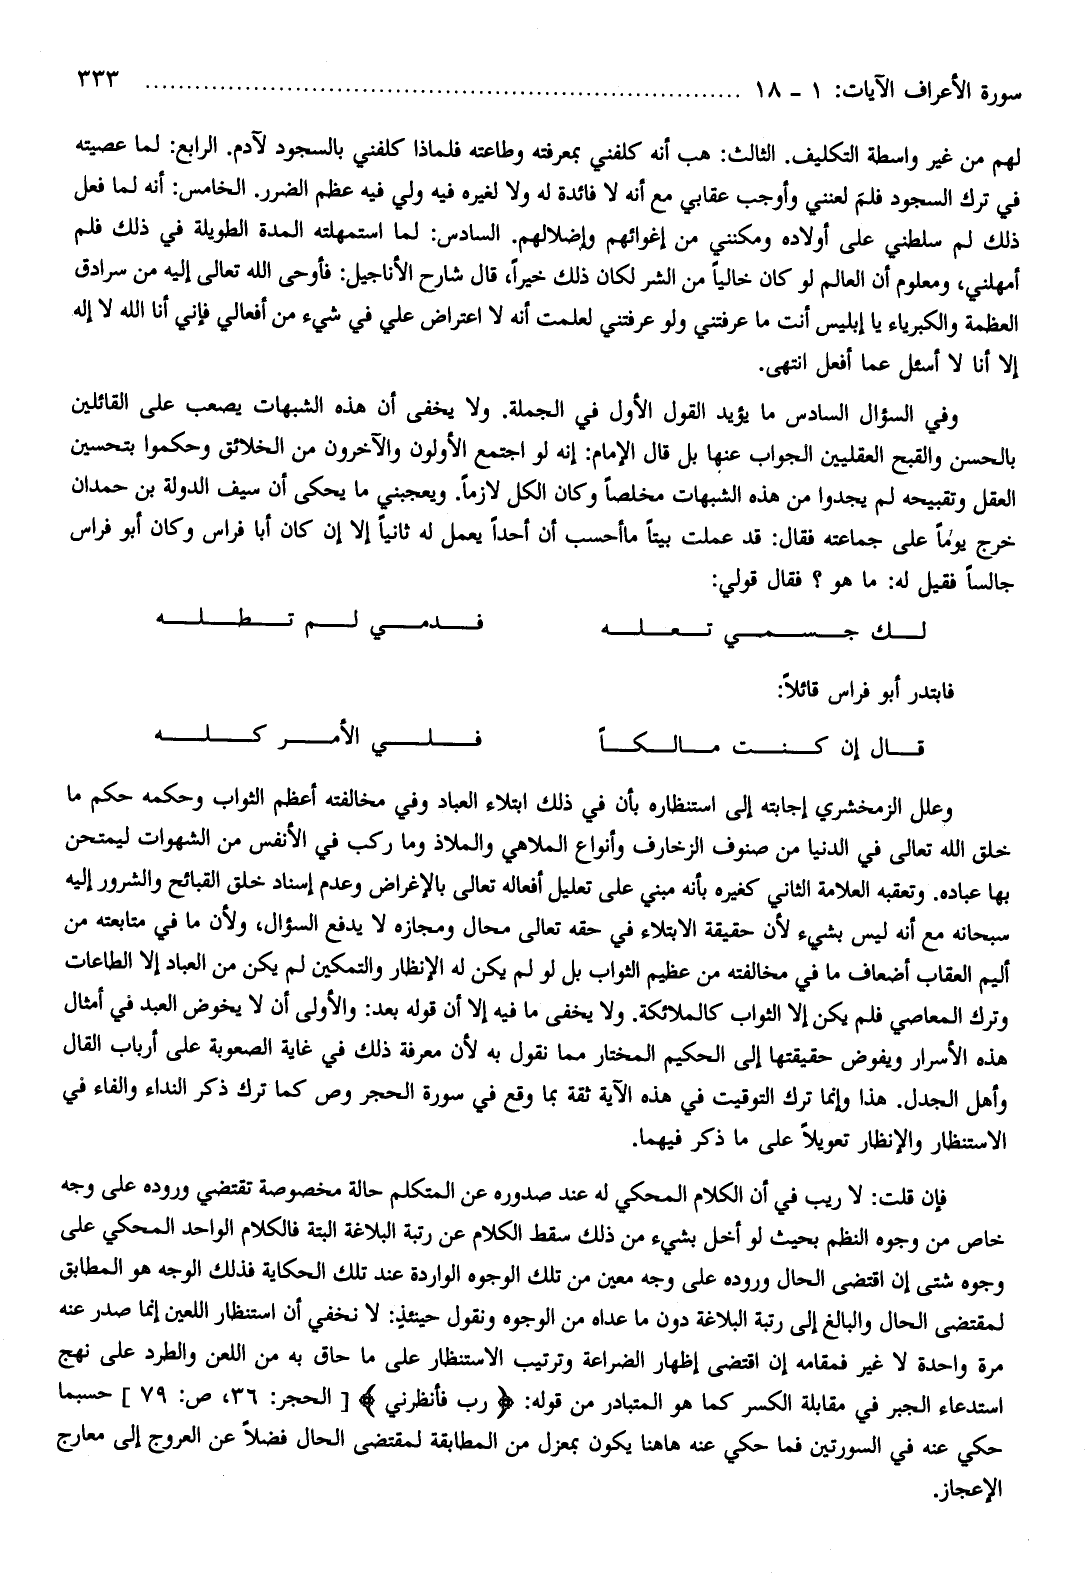 سورة الأعراف الآيات: ١ - ١٨ ........................................................................ ٣٣٣
لهم من غير واسطة التكليف. الثالث: هب أنه كلفني بمعرفته وطاعته فلماذا كلفني بالسجود لآدم. الرابع: لما عصيته
في ترك السجود فلمَ لعنني وأوجب عقابي مع أنه لا فائدة له ولا لغيره فيه ولي فيه عظم الضرر. الخامس: أنه لما فعل
ذلك لم سلطني على أولاده ومكنني من إغوائهم وإضلالهم. السادس: لما استمهلته المدة الطويلة في ذلك فلم
أمهلني، ومعلوم أن العالم لو كان خالياً من الشر لكان ذلك خيراً، قال شارح الأناجيل: فأوحى الله تعالى إليه من سرادق
العظمة والكبرياء يا إبليس أنت ما عرفتني ولو عرفتني لعلمت أنه لا اعتراض علي في شيء من أفعالي فإني أنا الله لا إله
إلا أنا لا أسئل عما أفعل انتهى.
وفي السؤال السادس ما يؤيد القول الأول في الجملة. ولا يخفى أن هذه الشبهات يصعب على القائلين
بالحسن والقبح العقليين الجواب عنها بل قال الإمام: إنه لو اجتمع الأولون والآخرون من الخلائق وحكموا بتحسين
العقل وتقبيحه لم يجدوا من هذه الشبهات مخلصاً وكان الكل لازماً. ويعجبني ما يحكى أن سيف الدولة بن حمدان
خرج يوماً على جماعته فقال: قد عملت بيتاً ماأحسب أن أحداً يعمل له ثانياً إلا إن كان أبا فراس وكان أبو فراس
جالساً فقيل له: ما هو ؟ فقال قولي:
لـــك جـــســـمـــي تـــعـــلـــه فـــدمـــي لـــم تـــطـــلـــه
فابتدر أبو فراس قائلاً:
قـــال إن كـــنـــت مـــالـــكـــاً فـــلـــي الأمـــر كـــلـــه
وعلل الزمخشري إجابته إلى استنظاره بأن في ذلك ابتلاء العباد وفي مخالفته أعظم الثواب وحكمه حكم ما
خلق الله تعالى في الدنيا من صنوف الزخارف وأنواع الملاهي والملاذ وما ركب في الأنفس من الشهوات ليمتحن
بها عباده. وتعقبه العلامة الثاني كغيره بأنه مبني على تعليل أفعاله تعالى بالإغراض وعدم إسناد خلق القبائح والشرور إليه
سبحانه مع أنه ليس بشيء لأن حقيقة الابتلاء في حقه تعالى محال ومجازه لا يدفع السؤال، ولأن ما في متابعته من
أليم العقاب أضعاف ما في مخالفته من عظيم الثواب بل لو لم يكن له الإنظار والتمكين لم يكن من العباد إلا الطاعات
وترك المعاصي فلم يكن إلا الثواب كالملائكة. ولا يخفى ما فيه إلا أن قوله بعد: والأولى أن لا يخوض العبد في أمثال
هذه الأسرار ويفوض حقيقتها إلى الحكيم المختار مما نقول به لأن معرفة ذلك في غاية الصعوبة على أرباب القال
وأهل الجدل. هذا وإنما ترك التوقيت في هذه الآية ثقة بما وقع في سورة الحجر وص كما ترك ذكر النداء والفاء في
الاستنظار والإنظار تعويلاً على ما ذكر فيهما.
فإن قلت: لا ريب في أن الكلام المحكي له عند صدوره عن المتكلم حالة مخصوصة تقتضي وروده على وجه
خاص من وجوه النظم بحيث لو أخل بشيء من ذلك سقط الكلام عن رتبة البلاغة البتة فالكلام الواحد المحكي على
وجوه شتى إن اقتضى الحال وروده على وجه معين من تلك الوجوه الواردة عند تلك الحكاية فذلك الوجه هو المطابق
لمقتضى الحال والبالغ إلى رتبة البلاغة دون ما عداه من الوجوه ونقول حينئذٍ: لا نخفي أن استنظار اللعين إنما صدر عنه
مرة واحدة لا غير فمقامه إن اقتضى إظهار الضراعة وترتيب الاستنظار على ما حاق به من اللعن والطرد على نهج
استدعاء الجبر في مقابلة الكسر كما هو المتبادر من قوله: ﴿ رب فأنظرني ﴾ [ الحجر: ٣٦، ص: ٧٩ ] حسبما
حكي عنه في السورتين فما حكي عنه هاهنا يكون بمعزل من المطابقة لمقتضى الحال فضلاً عن العروج إلى معارج
الإعجاز.